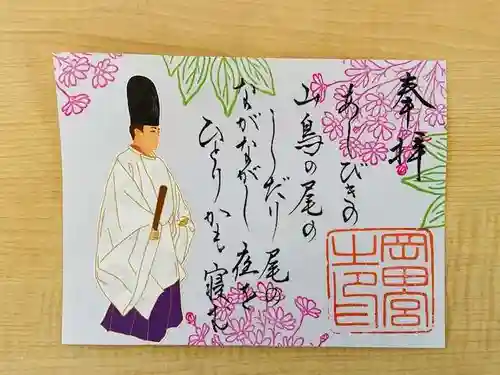 奉拝
あしびきの
山鳥の尾の
しだり尾の
ながながし夜を
ひとりかも寝む
岡田宮
之印